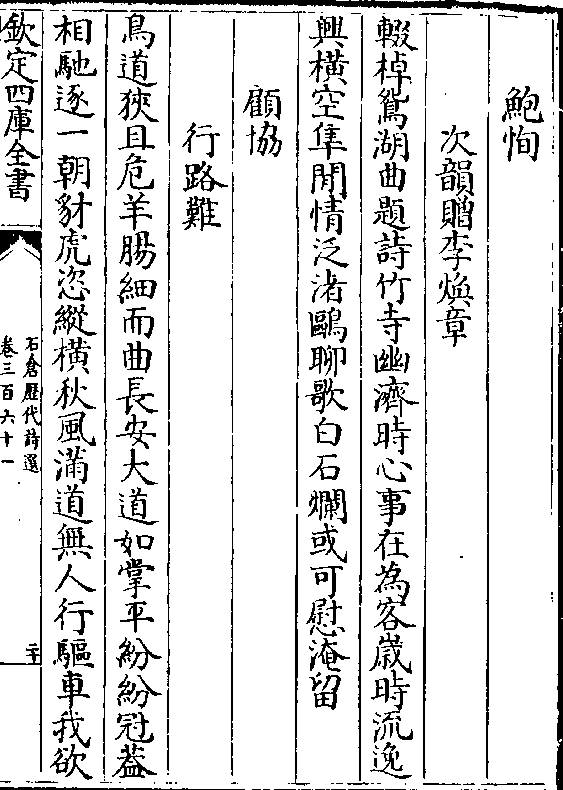 鮑恂
次韻贈李煥章
輟棹鴛湖曲題詩竹寺幽濟時心事在為客嵗時流逸
興横空隼閒情泛渚鷗聊歌白石爛或可慰淹留
顧協
行路難
鳥道狹且危羊腸細而曲長安大道如掌平紛紛冠葢
相馳逐一朝豺虎恣縱橫秋風滿道無人行驅車我欲
欽定四庫全書
石倉歴代詩選
卷三百六十一
二十